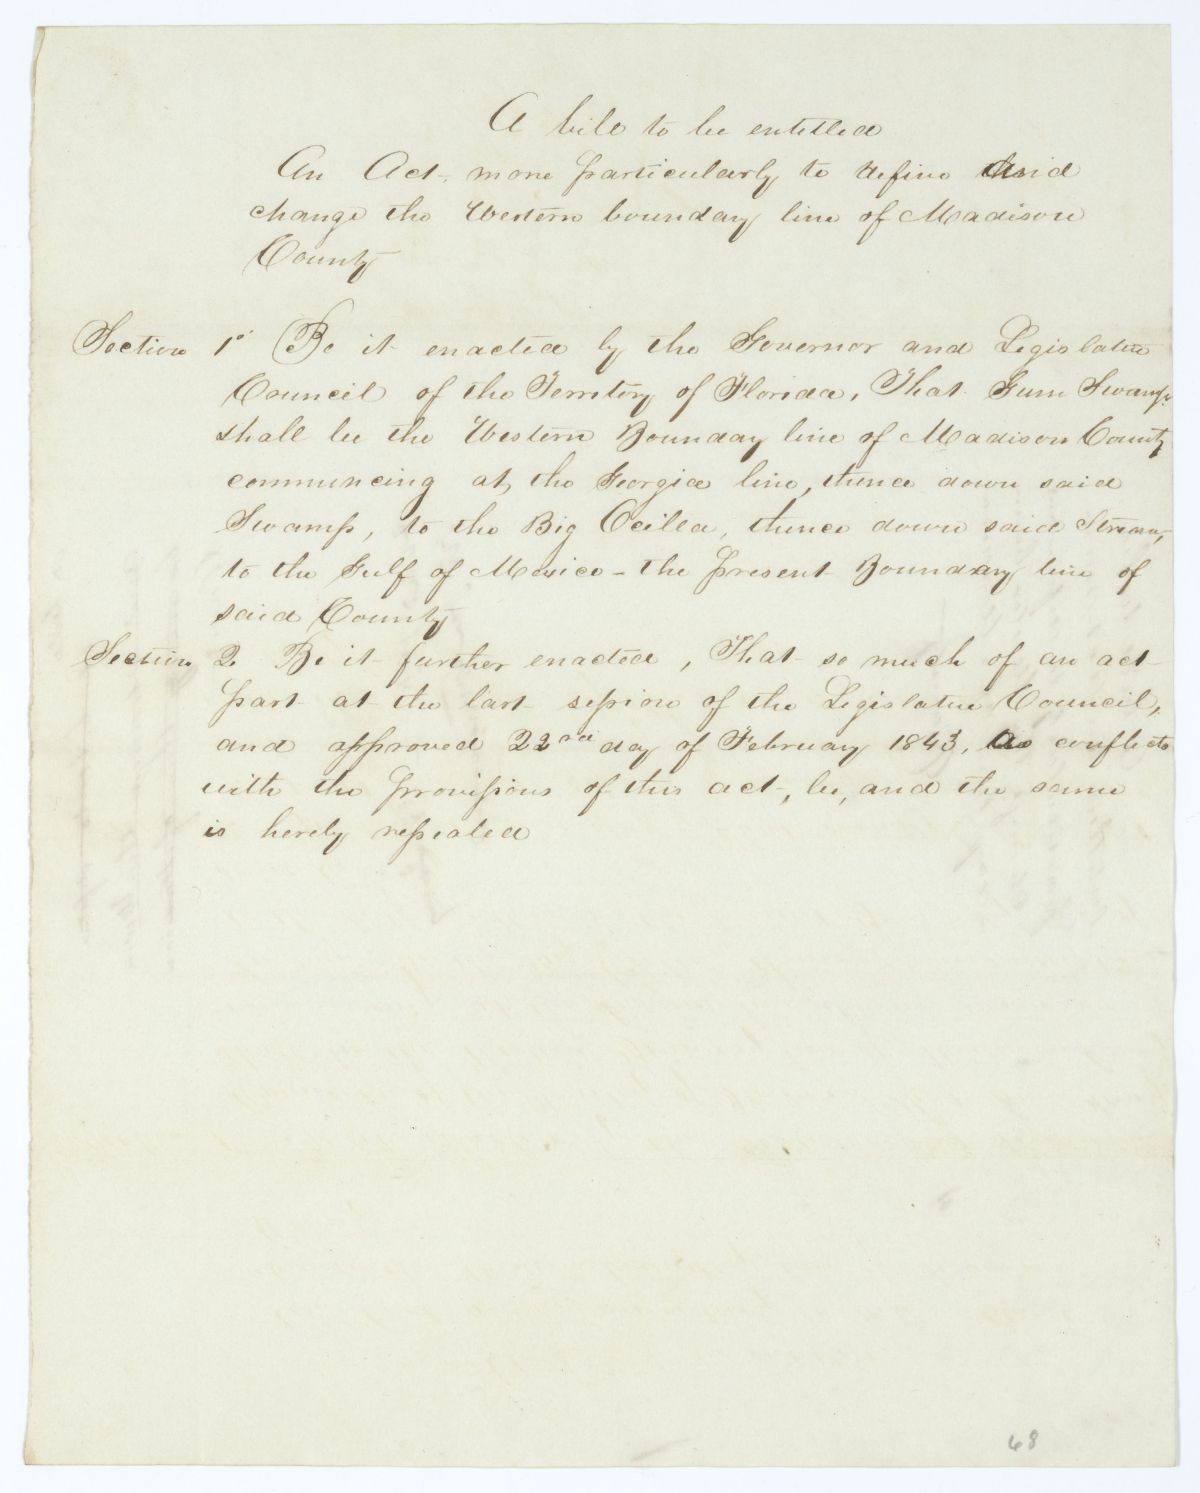 A bill to be entitled
An Act, more particularly to define and
change the Western bounday line of Madison
County
Section 1st Be it enacted by the Governor and Legislative
Council of the Territory of Florida, That Gum Swamp
shall be the Western Bounday line of Madison County
commencing at, the Georgia line, thence down said
Swamp, to the Big Ocilla, thence down said Stream,
to the Gulf of Mexico - the present Boundary line of
said County
Section 2. Be it further enacted, That so much of an act
part at the last session of the Legislative Council,
and approved 22nd day of February 1843, as conflicts
with the provissions of this act, be, and the same
is hereby repealed
68